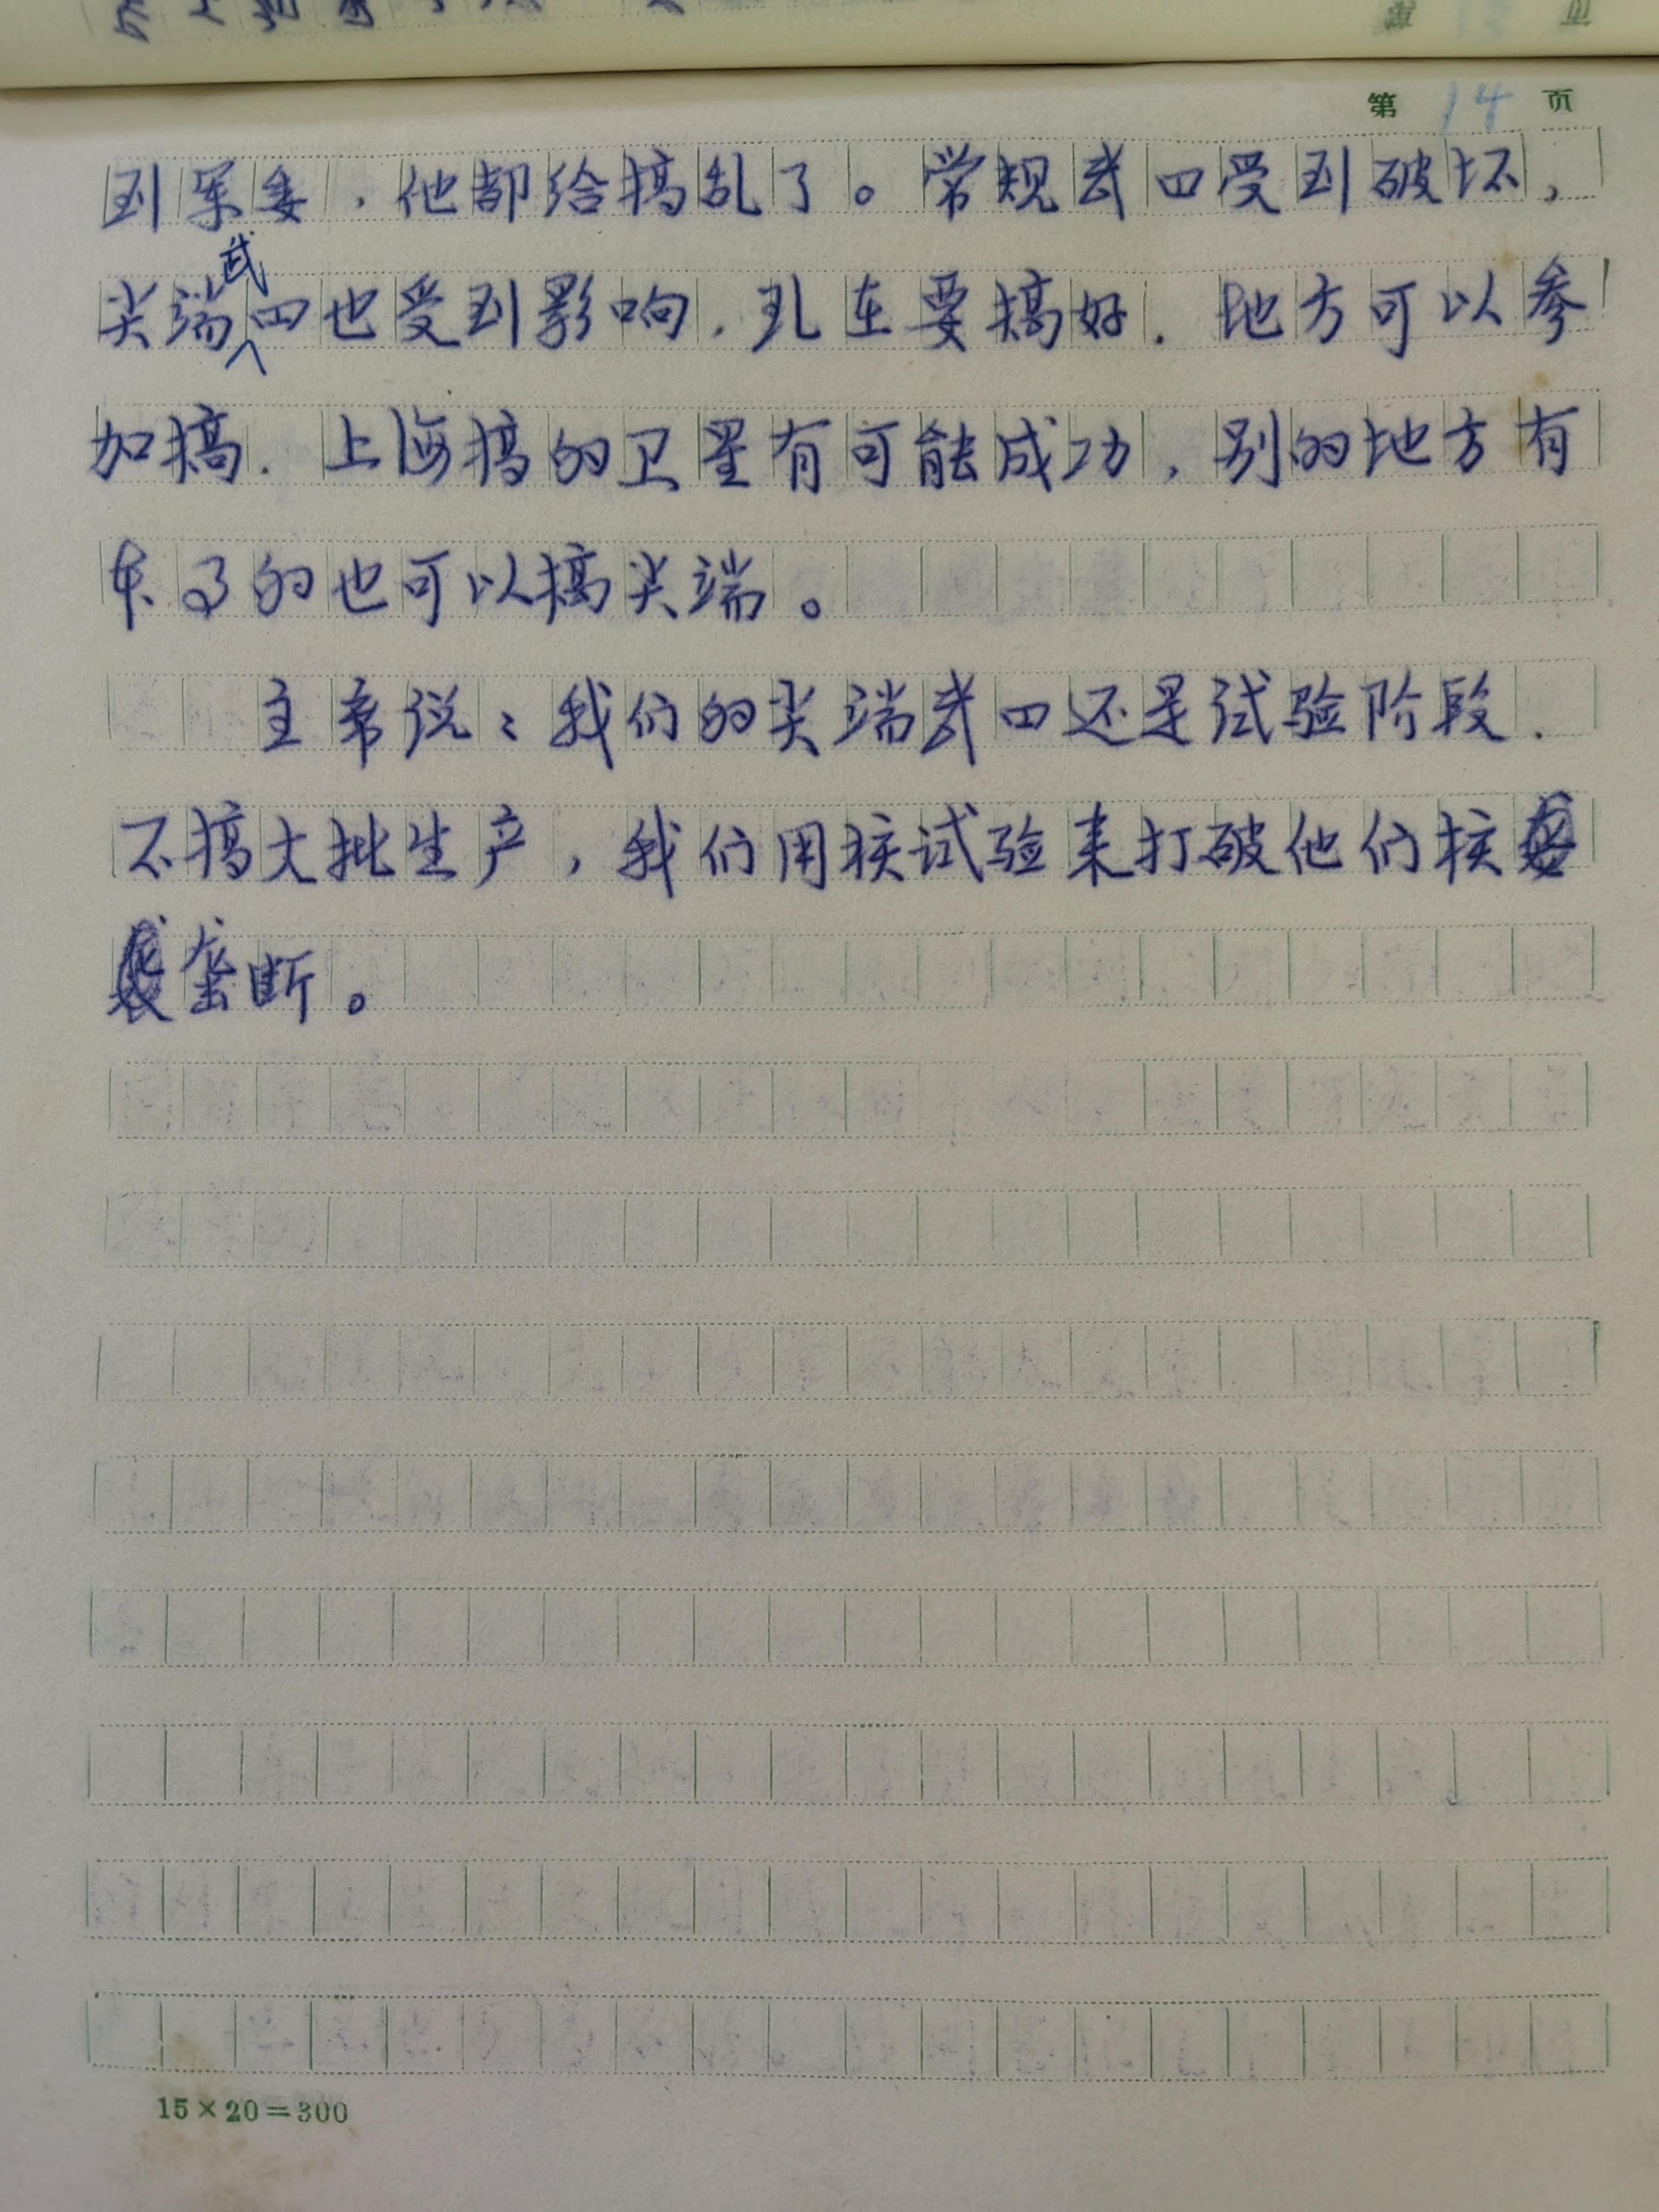 第 14 页
到军委，他都给搞乱了。常规武四受到破坏，
尖端武四也受到影响，现在要搞好．地方可以参
加搞．上海搞的卫星有可能成功，别的地方有
的也可以搞尖端。
主席说：我们的尖端武四还是试验阶段．
不搞大批生产，我们用核试验来打破他们核
垄断。
15×20=300